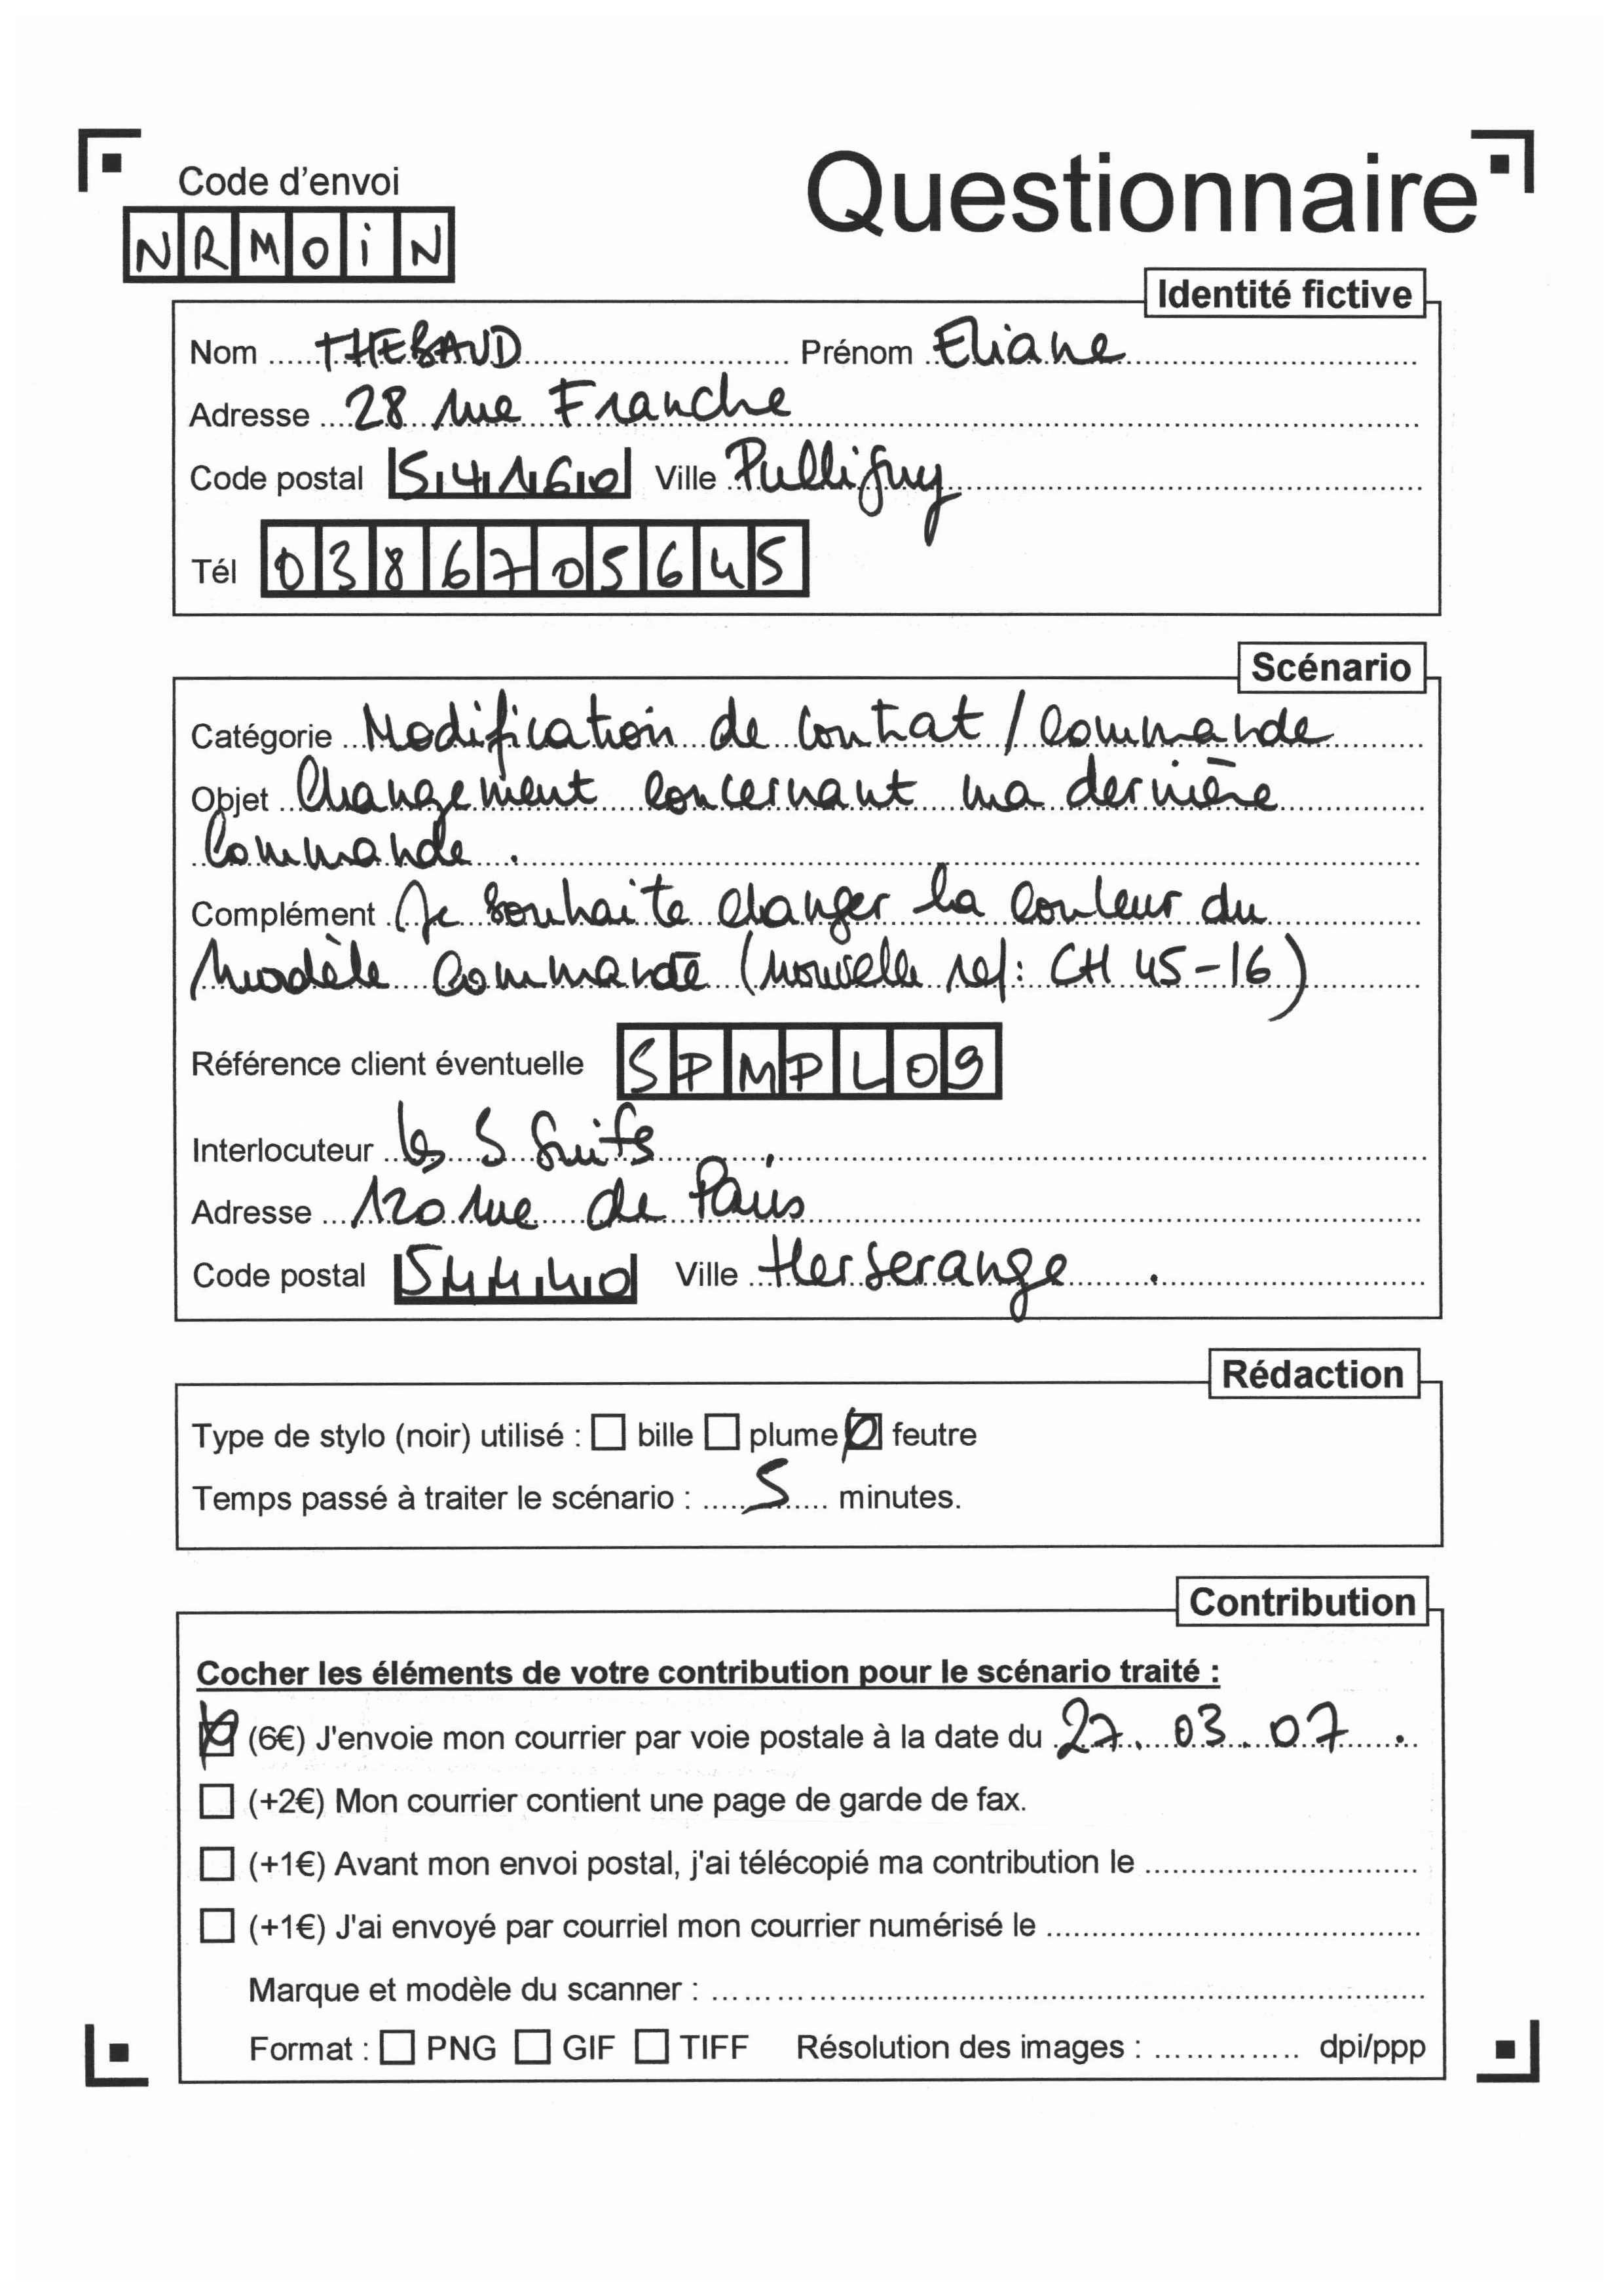 Code d'envoi
Questionnaire
NRMOiN
Identité fictive
Nom THEBAUD Prénom Eliane
Adresse 28 rue Franche
Code postal 54160 Ville Pulligny
Tél 0386705645
Scénario
Catégorie Modification de contrat / commande
Objet Changement concernant ma dernière
commande.
Complément Je souhaite changer la couleur du
modèle commandé (nouvelle ref: CH 45-16)
Référence client éventuelle SPMPL09
Interlocuteur les 3 Suits
Adresse 120 rue de Paris
Code postal 54440 Ville Herserange
Rédaction
Type de stylo (noir) utilisé : bille plume feutre
Temps passé à traiter le scénario : 5 minutes.
Contribution
Cocher les éléments de votre contribution pour le scénario traité :
(6€) J'envoie mon courrier par voie postale à la date du 27.03.07.
(+2€) Mon courrier contient une page de garde de fax.
(+1€) Avant mon envoi postal, j'ai télécopié ma contribution le
(+1€) J'ai envoyé par courriel mon courrier numérisé le
Marque et modèle du scanner :
Format : PNG GIF TIFF Résolution des images : dpi/ppp